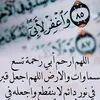 ٨٥ وَٱغْفِرْ لِأَبِىٓ
اللهم ارحم أبي رحمة تسع
سماوات والارض اللهم اجعل قبر
في نور دائم لا ينقطع واجعله في